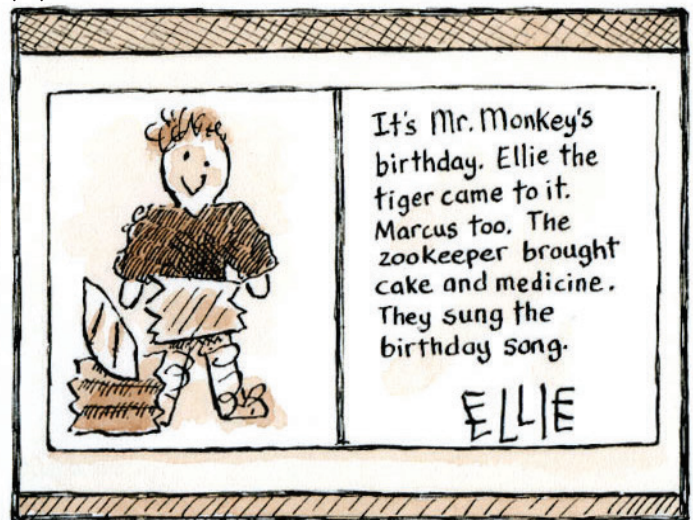 It's Mr. Monkey's
birthday. Ellie the
tiger came to it.
Marcus too. The
zookeeper brought
cake and medicine.
They sung the
birthday song.
ELLIE